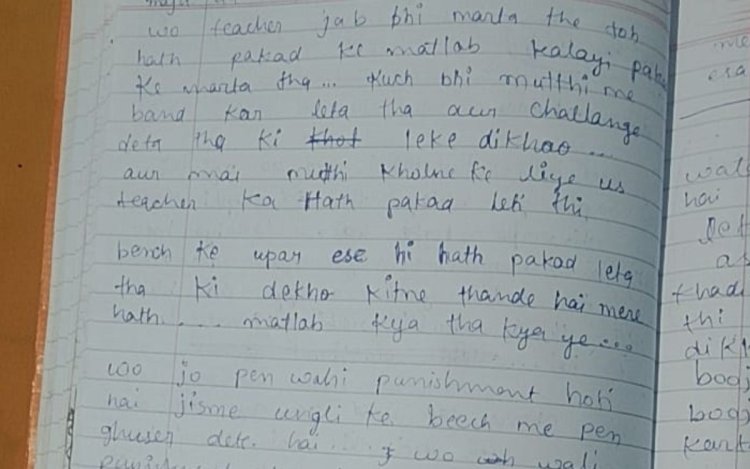 wo teacher jab bhi marta the toh
hath pakad ke matlab kalayi
ke marta tha... kuch bhi mutthi me
band kar leta tha aur challange
deta tha ki thot leke dikhao ...
aur mai mutthi kholne ke liye us
teacher ka Hath pakad leti thi
bench ke upar ese hi hath pakad leta
tha ki dekho kitne thande hai mere
hath.... matlab kya tha kya ye....
wo jo pen wali punishment hoti
hai jisme ungli ke beech me pen
ghuser dete hai... wo wali
wal
hai
thi
kar